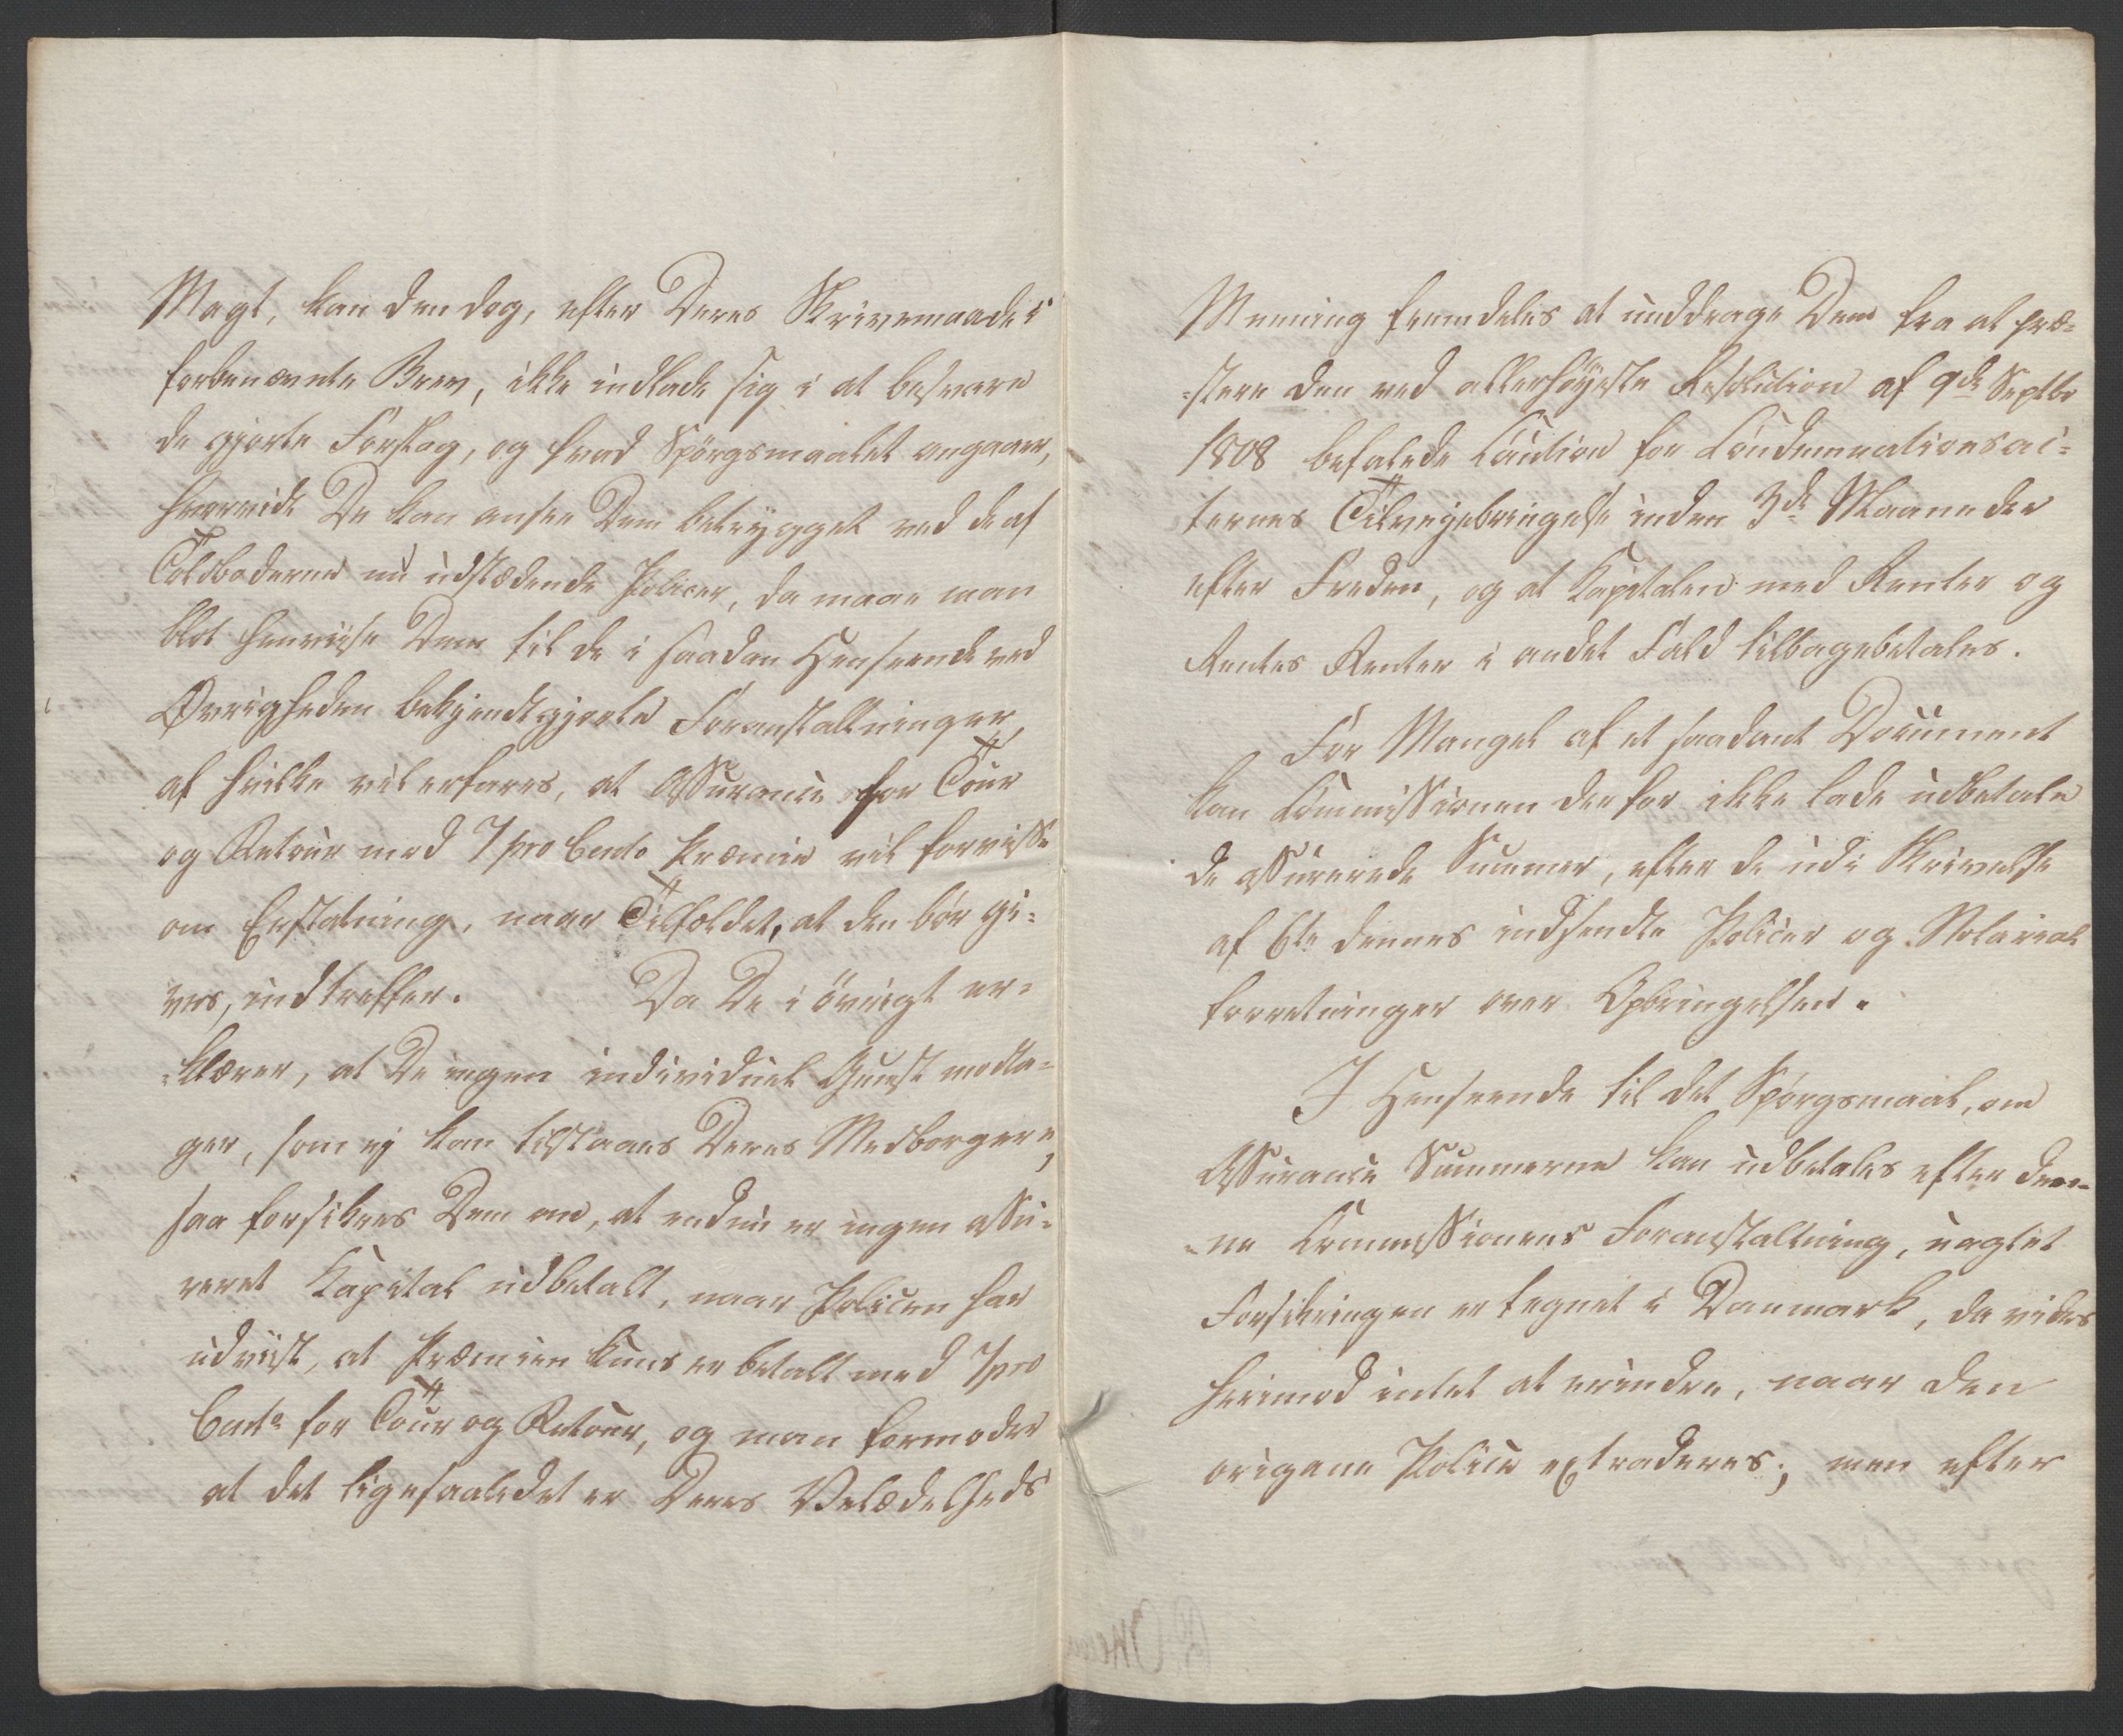 Magt, kan den dog, efter Deres Skrivemaade i
forbenævnte Brev, ikke indlade sig i at besvare
de gjorte Forslag, og hvad Spörgsmaalet angaaer,
hvorvidt De kan ansee Dem betrygget ved de af
Toldboderne nu udstædende Policer, da maae man
blot henviise Dem til de i saadan Henseende ved
Øvrigheden bekjendtgjorte Foranstaltninger,
af hvilke vil erfares, at Assurance for Tour
og Retour med 7 pro Cento Præmie vil forvisse
om Erstatning, naar Tilfældet, at den bör gi=
ves, indtreffer. Da De i övrigt er=
=klærer, at De ingen individuel Gunst modta=
ger, som ej kan tilstaaes Deres Medborgere,
saa forsikres Dem om, at endnu er ingen assu=
reret Kapital udbetalt, naar Policen har
udviist, at Præmien kuns er betalt med 7 pro
Cento for Tour og Retour, og man formoder
at det ligesaaledet er Deres Velædelheds
Mening fremdeles at unddrage Dem fra at præ=
=stere den ved allerhöyeste Resolution af 9de Septbr
1808 befalede Caution for Condemnationsac=
ternes Tilvejebringelse inden 3de Maaneder
efter Freden, og at Kapitalen med Renter og
Rentes Renter i andet Fald tilbagebetales.
For Mangel af et saadant Document
kan Commissionen derfor ikke lade udbetale
de assurerede Summer, efter de udi Skrivelse
af 6te dennes indsendte Policer og Notarial
forretninger over Opbringelsen.
I Henseende til det Spörgsmaal, om
Assurance Summerne kan udbetales efter den=
=ne Commissionens Foranstaltning, uagtet
Forsikringen er tegnet i Danmark, da vides
herimod intet at erindre, naar den
origene Police extraderes; men efter